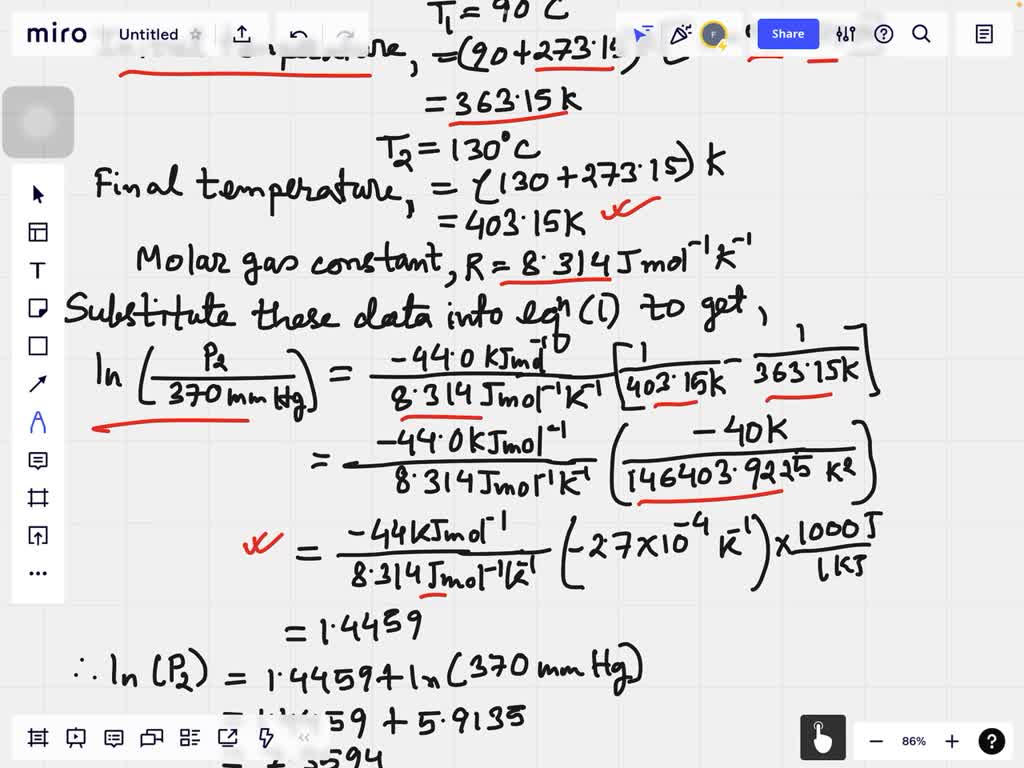 miro Untitled Share
T₁ = 90°C
temperature, = (90+273.15)
= 363.15K
T₂ = 130°C
Final temperature, = (130+273.15) K
= 403.15K
Molar gas constant, R = 8.314 Jmol⁻¹K⁻¹
Substitute these data into eqn (1) to get,
ln (P₂/370 mm Hg) = -44.0 KJmol⁻¹/8.314 Jmol⁻¹K⁻¹ [1/403.15K - 1/363.15K]
= -44.0KJmol⁻¹/8.314Jmol⁻¹K⁻¹ (-40K/146403.9225 K²)
= -44KJmol⁻¹/8.314Jmol⁻¹K⁻¹ (-2.7×10⁻⁴ K⁻¹) × 1000J/1KJ
= 1.4459
∴ ln (P₂) = 1.4459+ln(370 mm Hg)
= 59 + 5.9135
= 594
86%